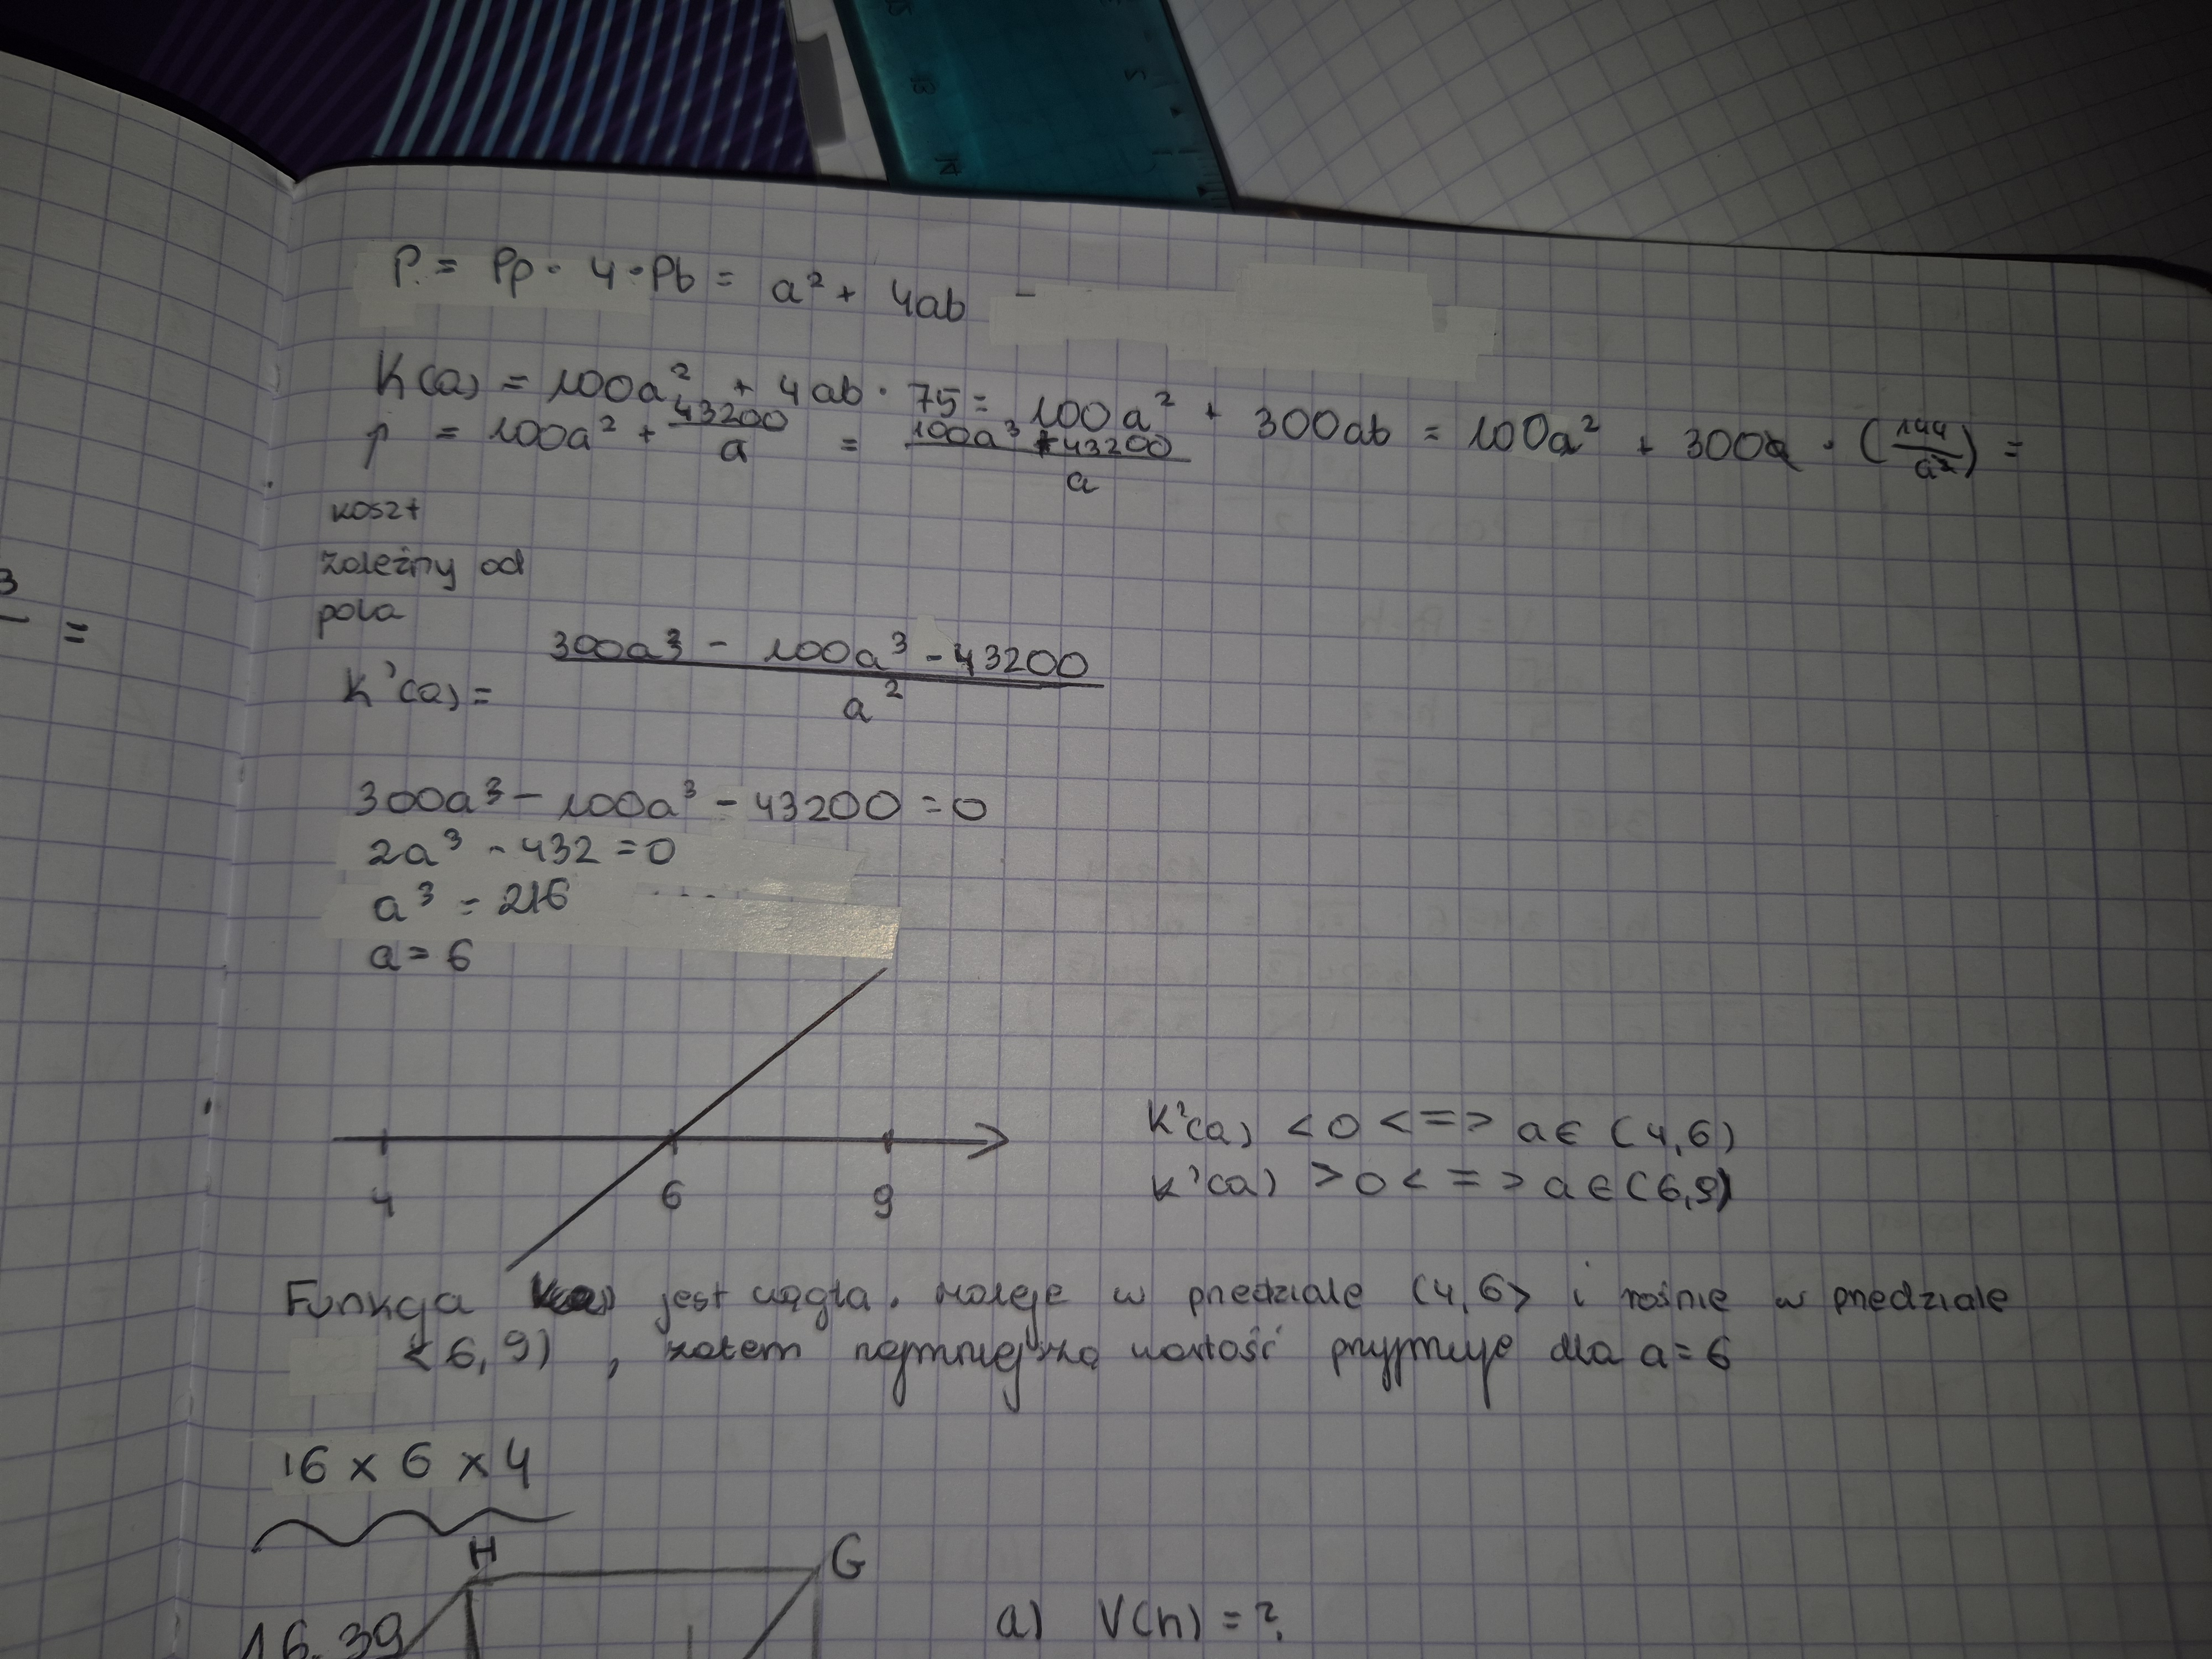 P = Pp · 4 · Pb = a² + 4ab -
K(a) = 100a² + 4ab · 75 = 100a² + 300ab = 100a² + 300a · (144/a²) =
= 100a² + 43200/a = (100a³ + 43200)/a
koszt
zależny od
pola
3
=
K'(a) = (300a³ - 100a³ - 43200)/a²
300a³ - 100a³ - 43200 = 0
2a³ - 432 = 0
a³ = 216
a = 6
4 6 9
K'(a) < 0 <=> a ∈ (4,6)
K'(a) > 0 <=> a ∈ (6,9)
Funkcja K(a) jest ciągła. maleje w przedziale (4,6> i rośnie w przedziale
<6,9) , zatem najmniejszą wartość przyjmuje dla a = 6
6 x 6 x 4
H
G
16.39
a) V(h) = ?